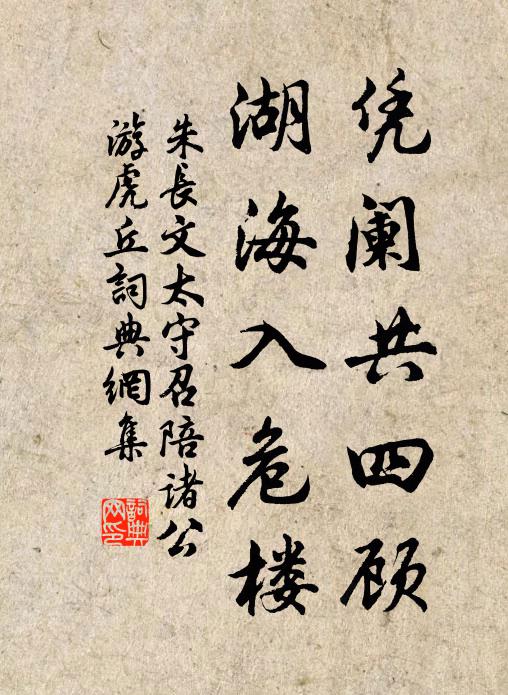 凭阑共四顾
湖海入危楼
朱長文太守召陪諸公
游虎丘詞典網集
詞典
网印